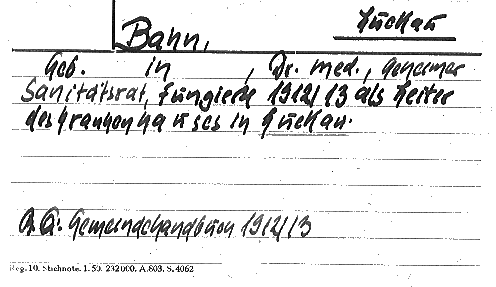 Luckau
Bahn,
Geb. in , Dr. med., Geheimer
Sanitätsrat, fungierte 1912/13 als Leiter
des Krankenhauses in Luckau.
Gemeindehandbuch 1912/13
Reg. 10. Stichnote. I. 50. 232000. A. 803. S. 4062